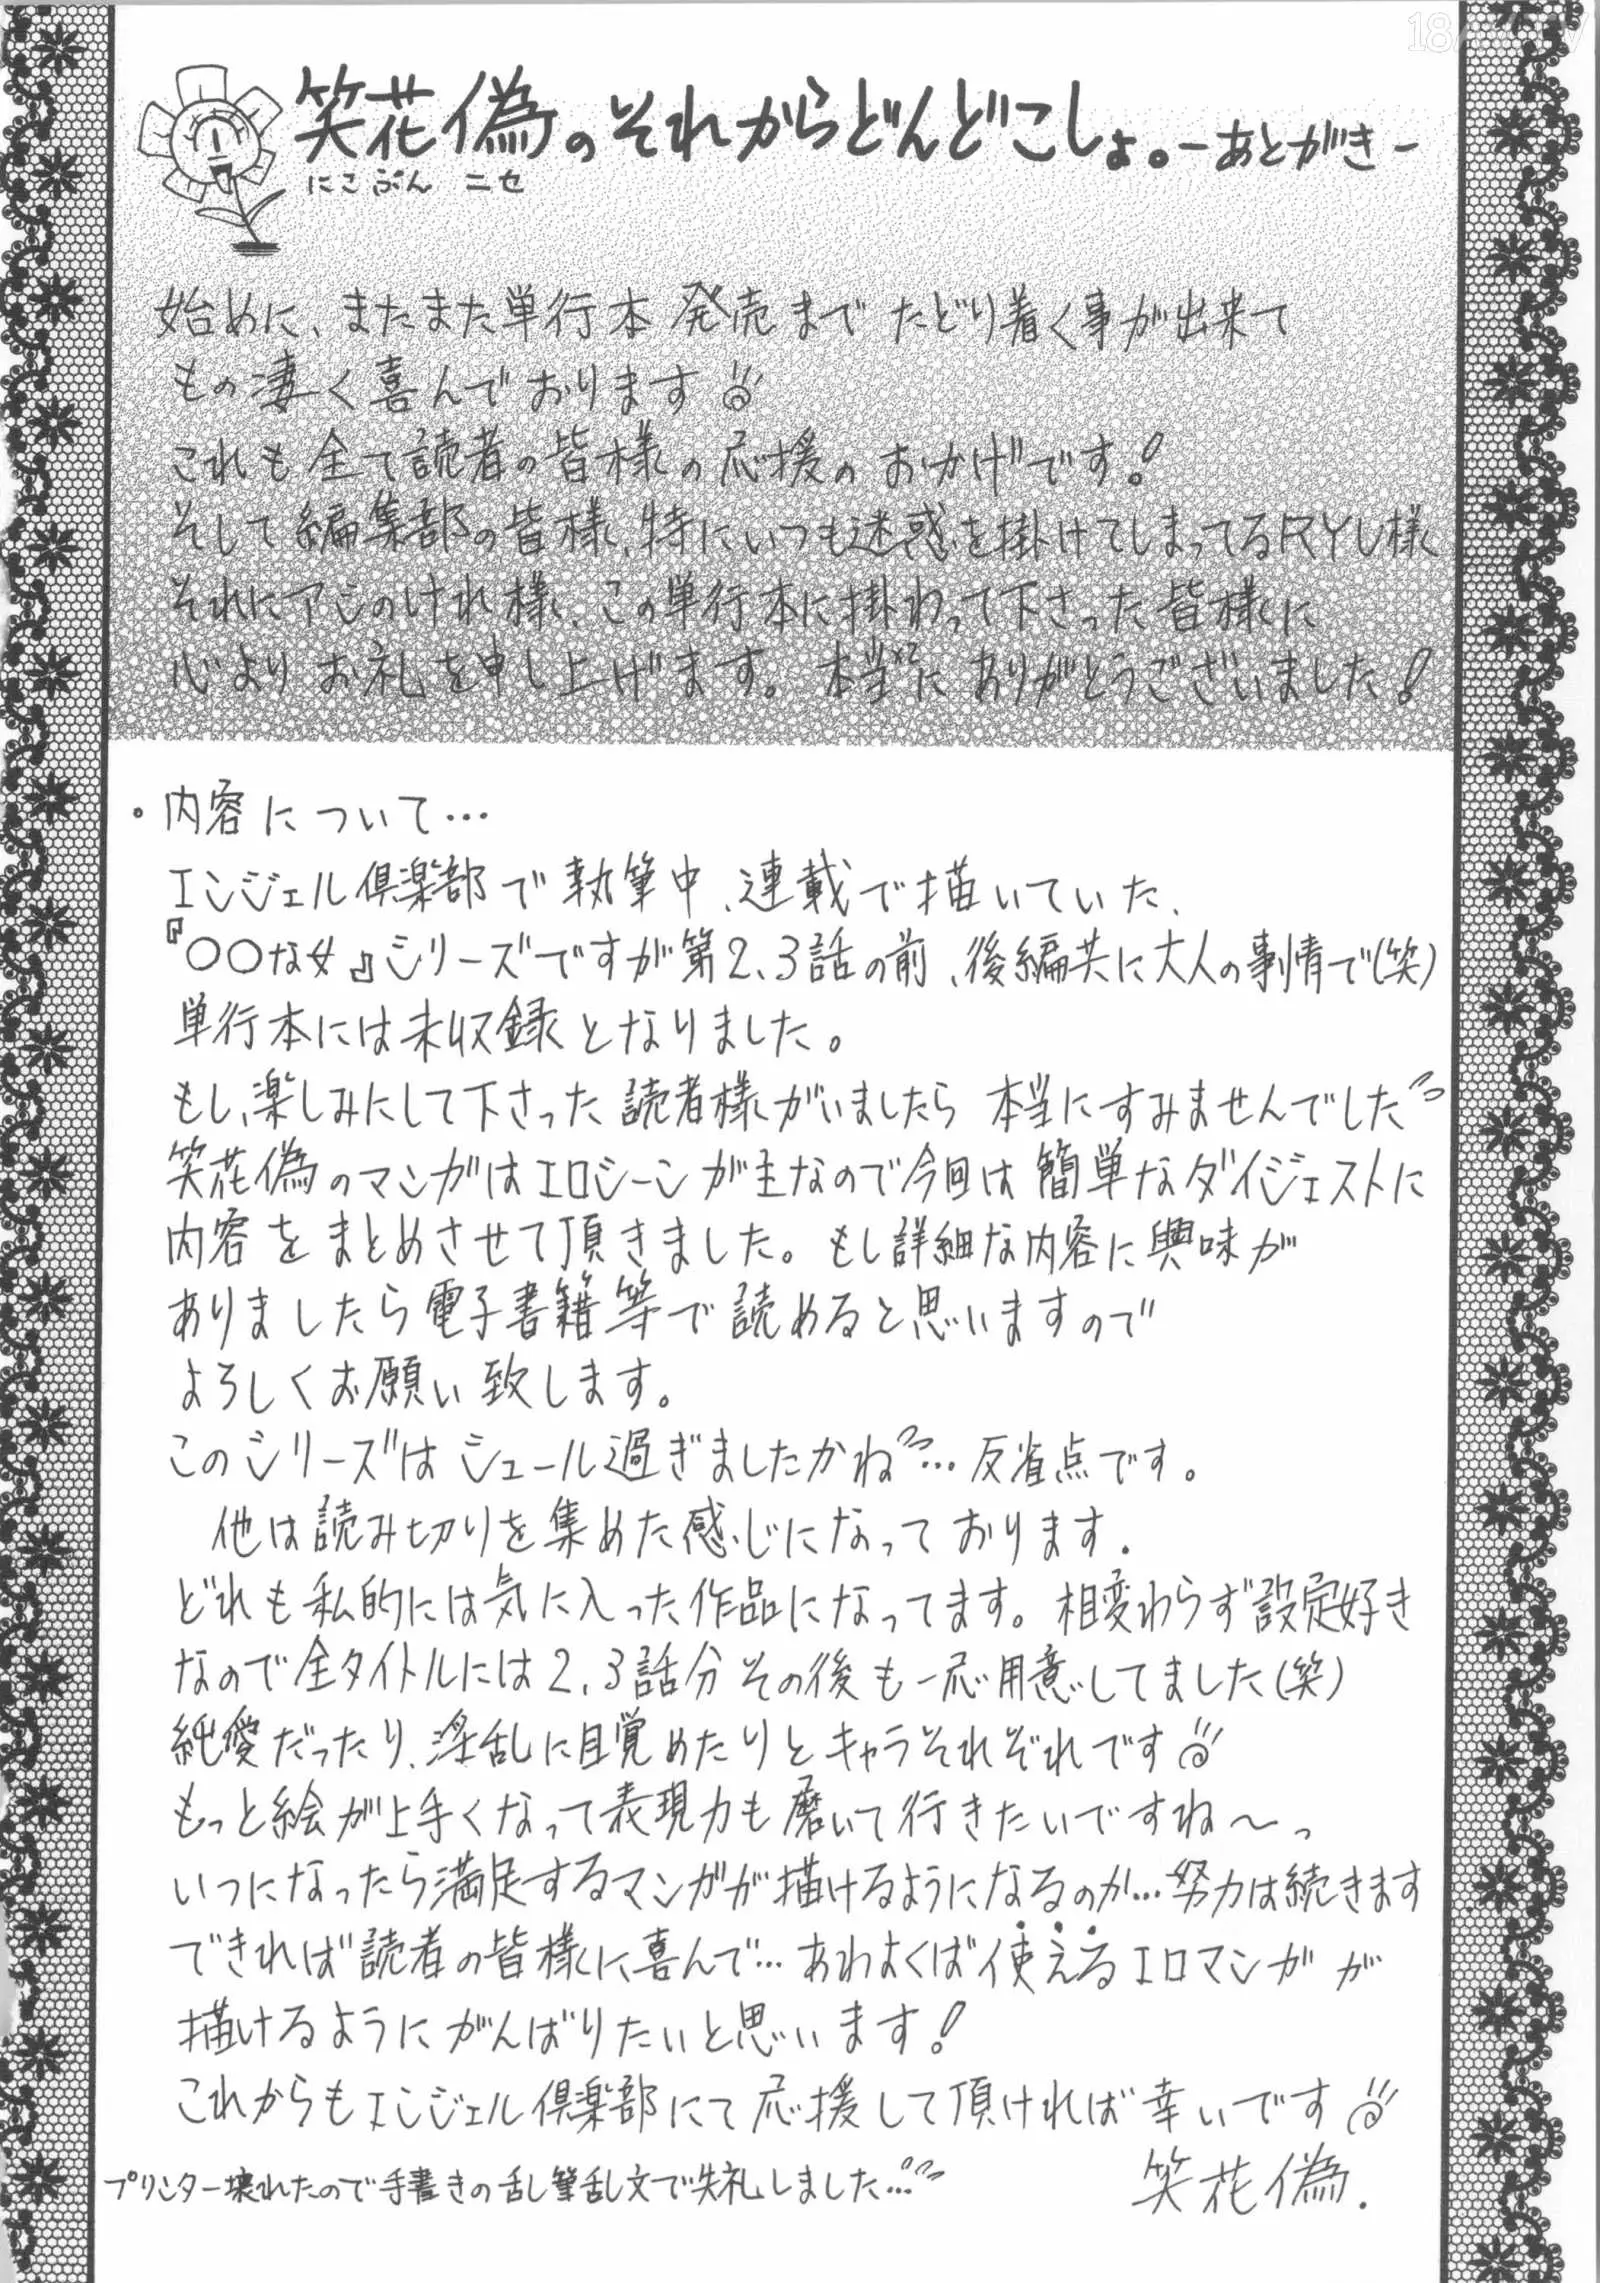 笑花偽のそれからどんどこしょ。-あとがき-
にこぷん ニセ
始めに、またまた単行本発売までたどり着く事が出来て
もの凄く喜んでおります
これも全て読者の皆様の応援のおかげです!
そして編集部の皆様、特にいつも迷惑を掛けてしまってるRYU様
それにアシのけれ様、この単行本に掛わって下さった皆様に
心よりお礼を申し上げます。本当×2にありがとうございました!
・内容について…
エンジェル倶楽部で執筆中、連載で描いていた、
『○○な女』シリーズですが第2、3話の前、後編共に大人の事情で(笑)
単行本には未収録となりました。
もし、楽しみにして下さった読者様がいましたら本当にすみませんでした
笑花偽のマンガはエロシーンが主なので今回は簡単なダイジェストに
内容をまとめさせて頂きました。もし詳細な内容に興味が
ありましたら電子書籍等で読めると思いますので
よろしくお願い致します。
このシリーズはシュール過ぎましたかね…反省点です。
他は読み切りを集めた感じになっております.
どれも私的には気に入った作品になってます。相変わらず設定好き
なので全タイトルには2、3話分その後も一応用意してました(笑)
純愛だったり、淫乱に目覚めたりとキャラそれぞれです
もっと絵が上手くなって表現力も磨いて行きたいですね〜っ
いつになったら満足するマンガが描けるようになるのか…努力は続きます
できれば読者の皆様に喜んで…あわよくば使えるエロマンガが
描けるようにがんばりたいと思います!
これからもエンジェル倶楽部にて応援して頂ければ幸いです
プリンター壊れたので手書きの乱筆乱文で失礼しました…
笑花偽.